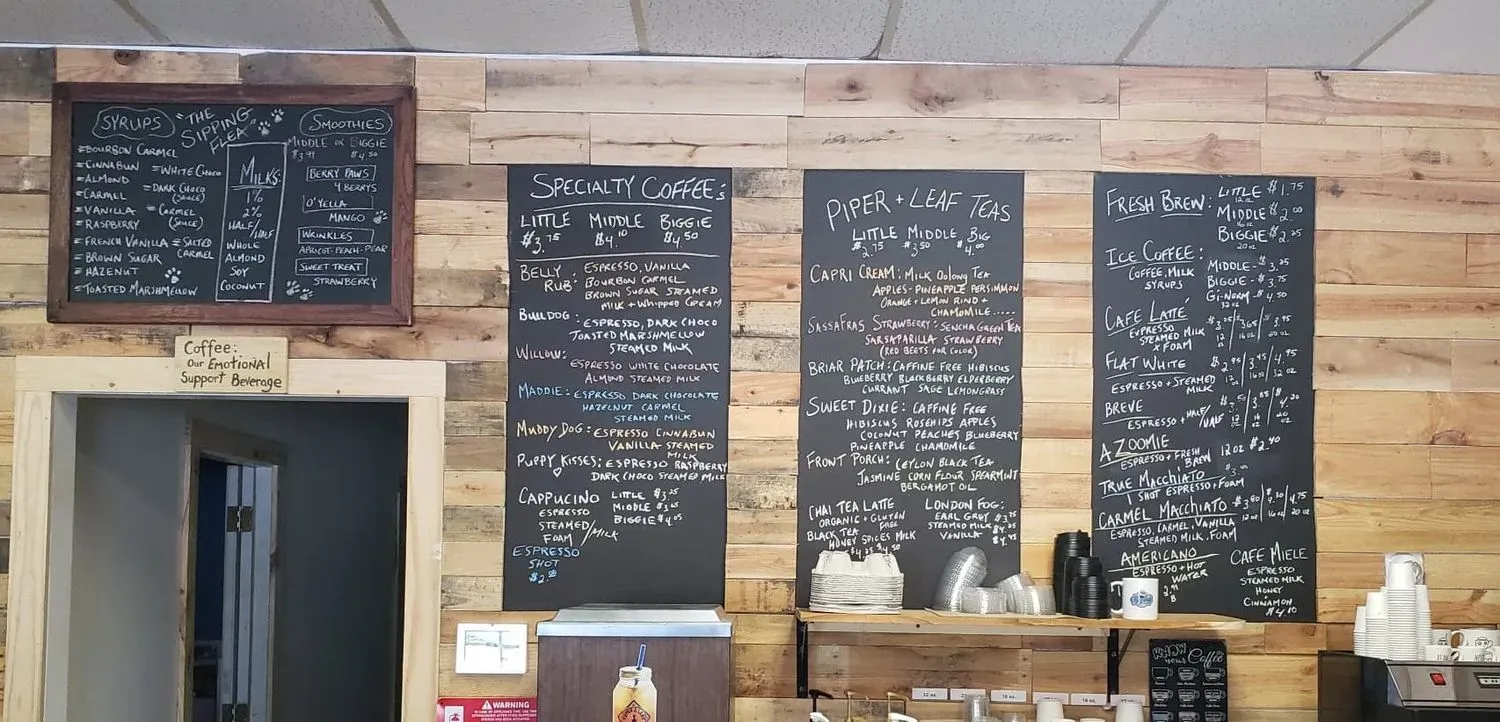 SYRUPS
"THE SIPPING FLEA"
BOURBON CARMEL
CINNABUN
ALMOND
CARMEL
VANILLA
RASPBERRY
FRENCH VANILLA
BROWN SUGAR
HAZENUT
TOASTED MARSHMELLOW
WHITE CHOCO
DARK CHOCO
(SAUCE)
CARMEL
(SAUCE)
SALTED
CARMEL
MILKS:
1%
2%
HALF/
HALF
WHOLE
ALMOND
SOY
COCONUT
SMOOTHIES
MIDDLE OR BIGGIE
$4.50
BERRY PAWS
4 BERRYS
O'YELLA
MANGO
WRINKLES
APRICOT-PEACH-PEAR
SWEET TREAT
STRAWBERRY
Coffee:
Our EMOTIONAL
Support Beverage
SPECIALTY COFFEE:s
LITTLE MIDDLE BIGGIE
$3.75 $4.10 $4.50
BELLY RUB: ESPRESSO, VANILLA
BOURBON CARMEL
BROWN SUGAR STEAMED
MILK + WHIPPED CREAM
BULLDOG:
ESPRESSO, DARK CHOCO
TOASTED MARSHMELLOW
STEAMED MILK
WILLOW:
ESPRESSO WHITE CHOCOLATE
ALMOND STEAMED MILK
MADDIE: ESPRESSO DARK CHOCOLATE
HAZELNUT CARMEL
STEAMED MILK
MUDDY DOG: ESPRESSO CINNABUN
VANILLA STEAMED
MILK
PUPPY KISSES: ESPRESSO RASPBERRY
DARK CHOCO STEAMED MILK
CAPPUCINO
ESPRESSO
STEAMED
FOAM/MILK
LITTLE
MIDDLE
BIGGIE $4.05
ESPRESSO
SHOT
PIPER + LEAF TEAS
LITTLE MIDDLE BIG
$2.75 $3.50 $4.00
CAPRI CREAM: MILK OOLONG TEA
APPLES-PINEAPPLE PERSIMMON
ORANGE + LEMON RIND +
CHAMOMILE.....
SASSAFRAS STRAWBERRY: SENCHA GREEN TEA
SARSAPARILLA STRAWBERRY
(RED BEETS FOR COLOR)
BRIAR PATCH: CAFFINE FREE HIBISCUS
BLUEBERRY BLACKBERRY ELDERBERRY
CURRANT SAGE LEMONGRASS
SWEET DIXIE: CAFFINE FREE
HIBISCUS ROSEHIPS APPLES
COCONUT PEACHES BLUEBERRY
PINEAPPLE CHAMOMILE
FRONT PORCH: CEYLON BLACK TEA
JASMINE CORN FLOUR SPEARMINT
BERGAMOT OIL
CHAI TEA LATTE
ORGANIC + GLUTEN
FREE
BLACK TEA
HONEY SPICES MILK
LONDON FOG:
EARL GREY $3.75
STEAMED MILK $4.25
VANILLA $4.45
FRESH BREW: LITTLE $1.75
12 oz
MIDDLE $2.00
16 oz
BIGGIE $2.25
20 oz
ICE COFFEE:
COFFEE, MILK
SYRUPS
MIDDLE - $3.25
BIGGIE - $3.75
GI-NORM - $4.50
32 oz
CAFE LATTÉ
EXPRESSO
STEAMED MILK
X FOAM
FLAT WHITE
ESPRESSO + STEAMED
MILK
BREVE
ESPRESSO + HALF/
HALF
A ZOOMIE
ESPRESSO + FRESH
BREW 12 OZ $2.40
TRUE MACCHIATO
1 SHOT ESPRESSO + FOAM
CARMEL MACCHIATO
ESPRESSO, CARMEL, VANILLA
STEAMED MILK, FOAM
AMERICANO
ESPRESSO + HOT
WATER
CAFE MIELE
ESPRESSO
STEAMED MILK
HONEY
CINNAMON
$4.10
WARNING
KNOW
YOUR Coffee
12 oz.
16 oz.